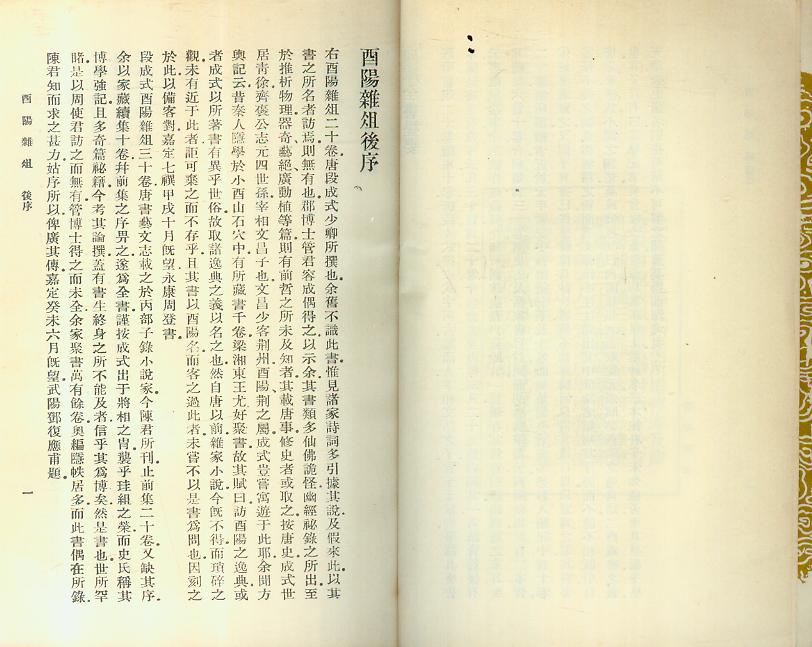 酉陽雜俎後序
右酉陽雜俎二十卷。唐段成式少卿所撰也。余舊不識此書。惟見諸家詩詞多引據其說。及假來此。以其
書之所名者訪焉。則無有也。郡博士管君容成偶得之。以示余。其書類多仙佛詭怪。幽經祕錄之所出。至
於推析物理。器奇、藝絕、廣動植等篇。則有前哲之所未及知者。其載唐事。修史者或取之。按唐史。成式世
居青徐。齊褒公志元四世孫。宰相文昌子也。文昌少客荆州。酉陽、荆之屬。成式豈嘗寓遊于此耶。余聞方
輿記云。昔秦人隱學於小酉山石穴中。有所藏書千卷。梁湘東王尤好聚書。故其賦曰。訪酉陽之逸典。或
者成式以所著書有異乎世俗。故取諸逸典之義以名之也。然自唐以前雜家小說。今旣不得而瑣碎之
觀。未有近于此者。詎可棄之而不存乎。且其書以酉陽名。而客之過此者。未嘗不以是書爲問也。因刻之
於此。以備客對。嘉定七禩甲戌十月旣望。永康周登書。
段成式酉陽雜俎三十卷。唐書藝文志載之於丙部子錄小說家。今陳君所刊止前集二十卷。又缺其序。
余以家藏續集十卷幷前集之序畀之。遂爲全書。謹按成式出于將相之胄。襲乎珪組之榮。而史氏稱其
博學強記。且多奇篇祕籍。今考其論撰。蓋有書生終身之所不能及者。信乎其爲博矣。然是書也。世所罕
睹。是以周使君訪之而無有。管博士得之而未全。余家聚書萬有餘卷。奧編隱帙居多。而此書偶在所錄。
陳君知而求之甚力。姑序所以。俾廣其傳。嘉定癸未六月旣望。武陽鄧復應甫題。
酉陽雜俎 後序 一